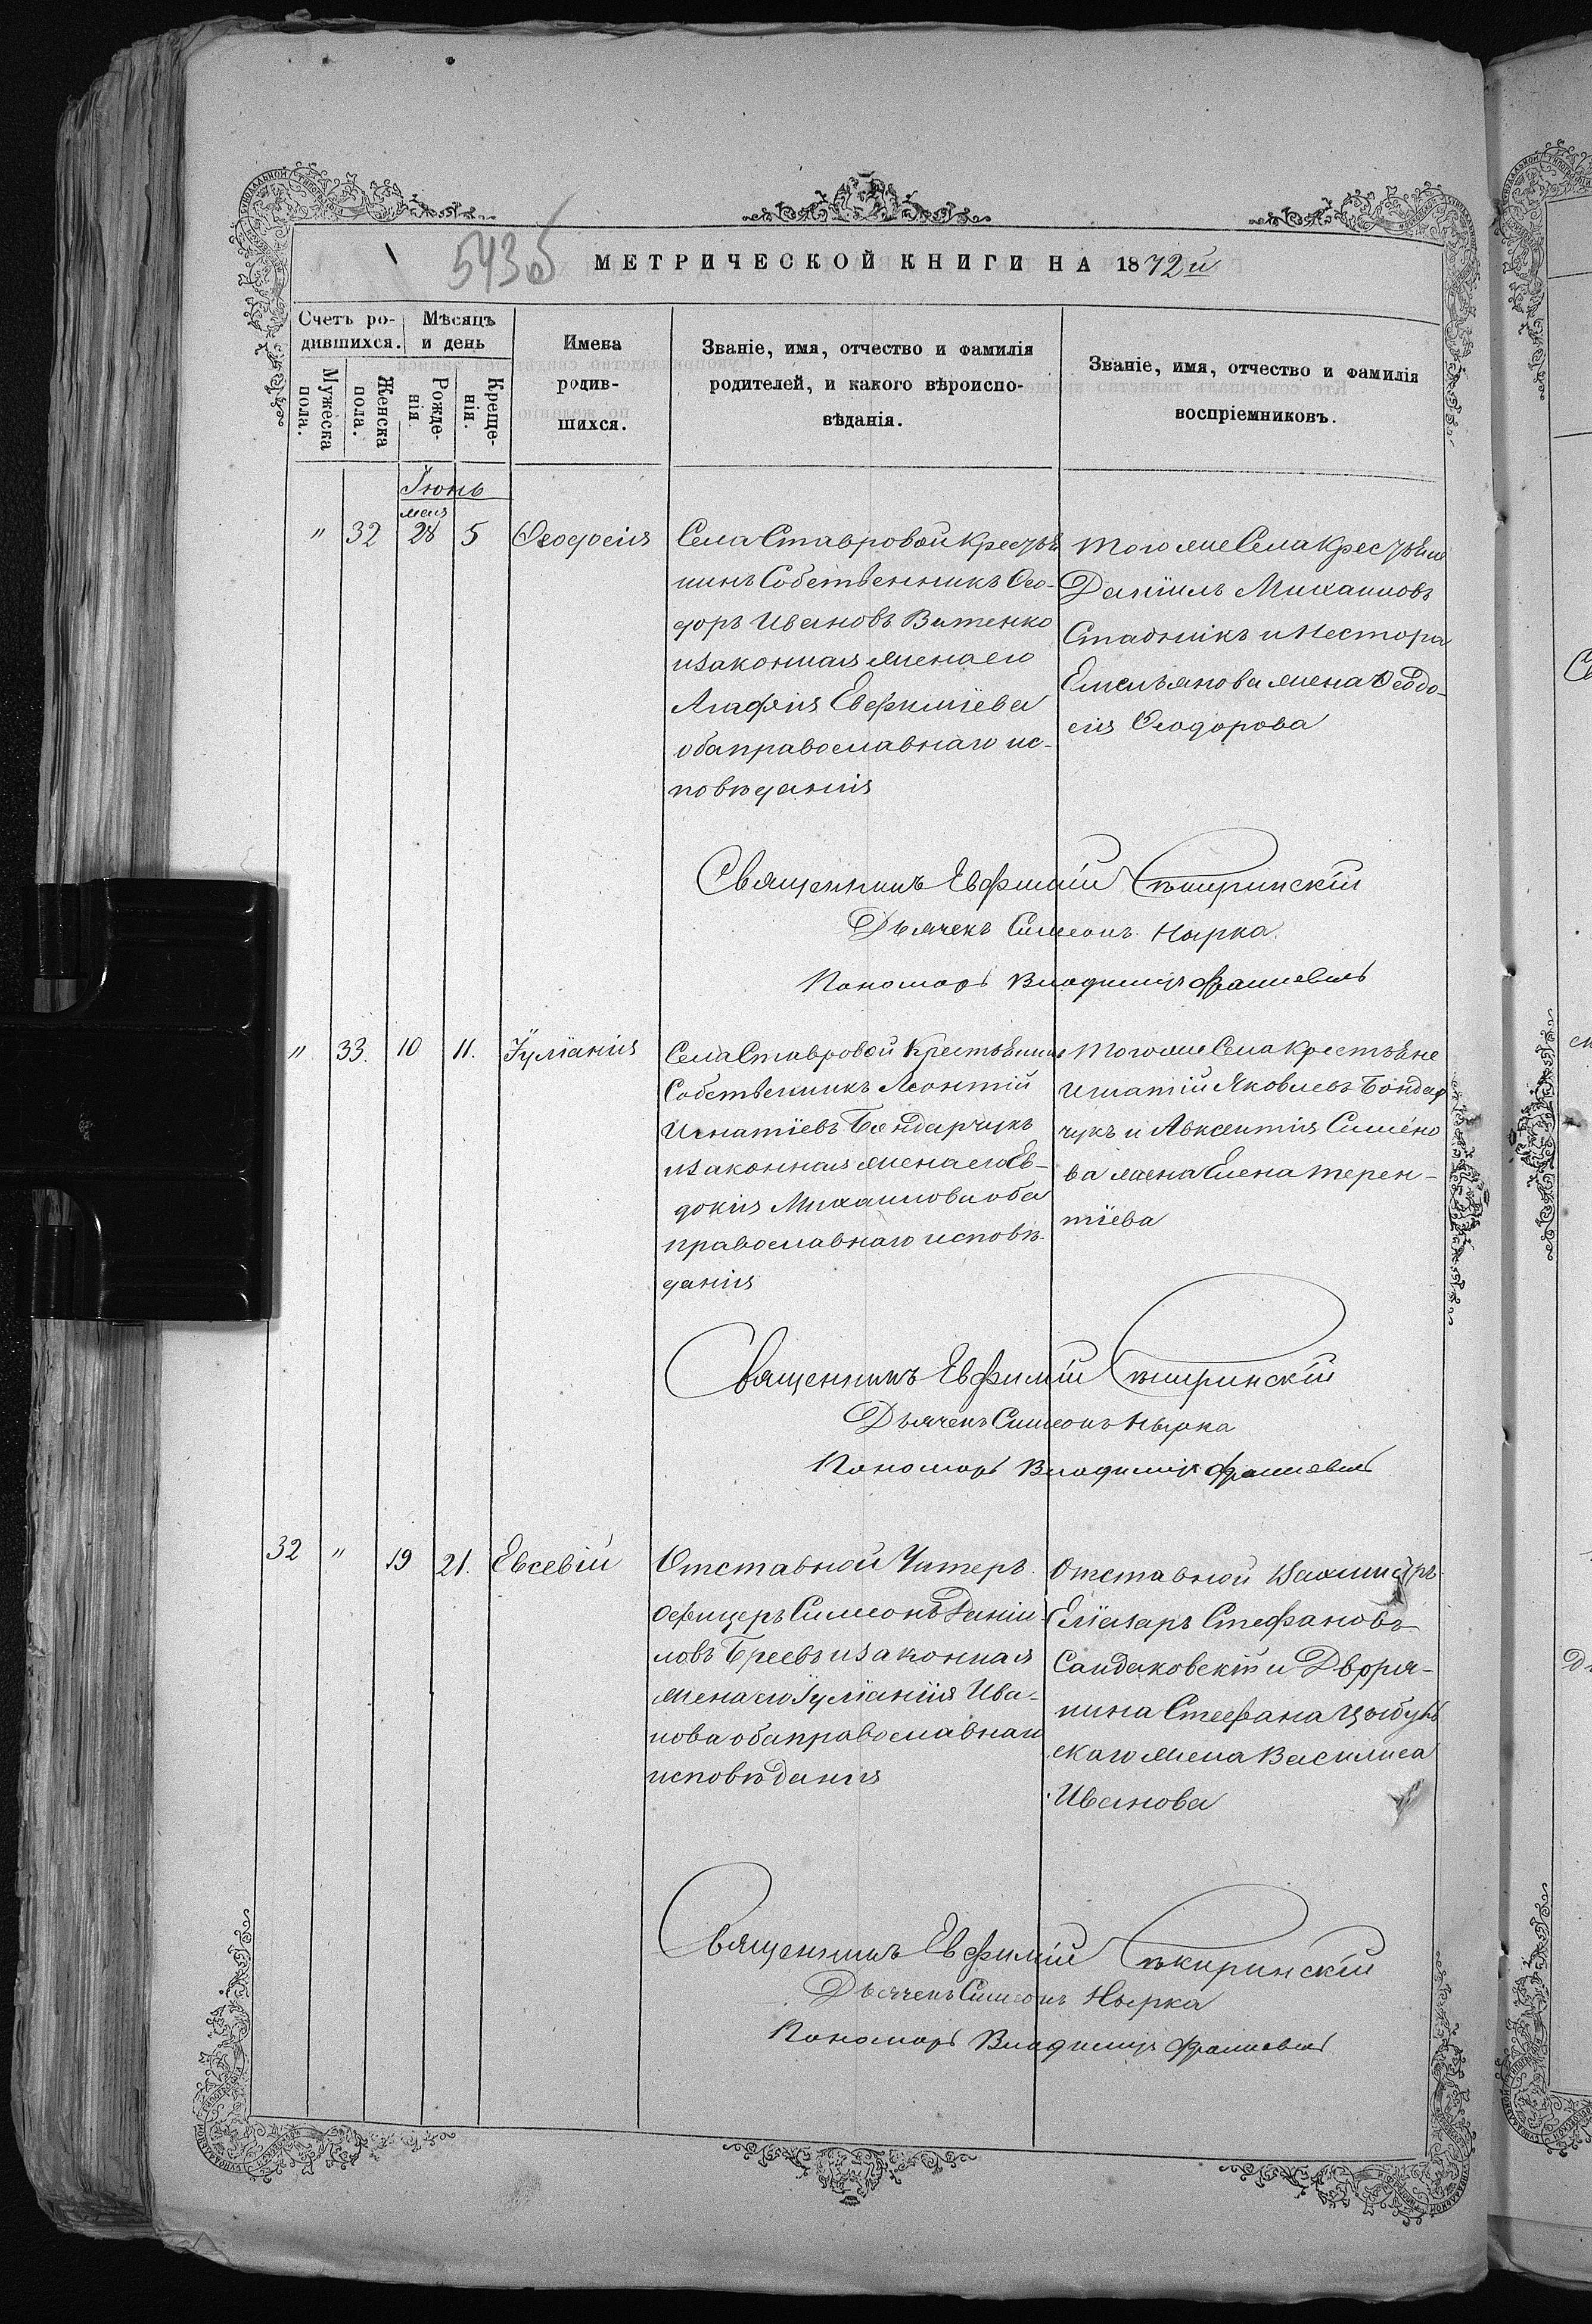 543б
МЕТРИЧЕСКОЙ КНИГИ НА 1872й
Счетъ ро-
дившихся.
Мужеска
пола.
Женска
пола.
Мѣсяцъ
и день
Рожде-
нія.
Креще-
нія.
Имена
родив-
шихся.
Званіе, имя, отчество и фамилія
родителей, и какого вѣроиспо-
вѣданія.
Званіе, имя, отчество и фамилія
воспріемниковъ.
Іюнь
мая
" 32 28 5 Ѳеодосія
Села Ставровой Крестья
нинъ Собственникъ Ѳео-
доръ Ивановъ Ватенко
и законная жена его
Агафія Евфиміева
оба православнаго ис-
повѣданія
Того же Села Крестьяне
Даніилъ Михаиловъ
Стадникъ и Нестора
Емельянова жена Ѳеодо-
сія Ѳеодорова
Священникъ Евфимій
Дьячекъ Симеонъ Нырка.
Пономарь Владимиръ
" 33. 10 11. Іуліанія
Села Ставровой Крестьянинъ
Собственникъ Леонтій
Игнатіевъ Бондарчукъ
и законная жена его Ев-
докія Михаилова оба
православнаго исповѣ-
данія
Того же Села Крестьяне
Игнатій Яковлевъ Бондар
чукъ и Авксентія Симено
ва жена Елена Терен-
тіева
Священникъ Евфимій
Дьячекъ Симеонъ Нырка
Пономарь Владимиръ
32 " 19 21. Евсевій
Отставной Унтеръ
офицеръ Симеонъ Даніи
ловъ и законная
жена его Іуліанія Ива-
нова оба православнаго
исповѣданія
Отставной Вахмистръ
Еліазаръ Стефановъ
Сандаковскій и Дворя-
нина Стефана
скаго жена Василиса
Иванова
Священникъ Евфимій
Дьячекъ Симеонъ Нырка
Пономарь Владимиръ